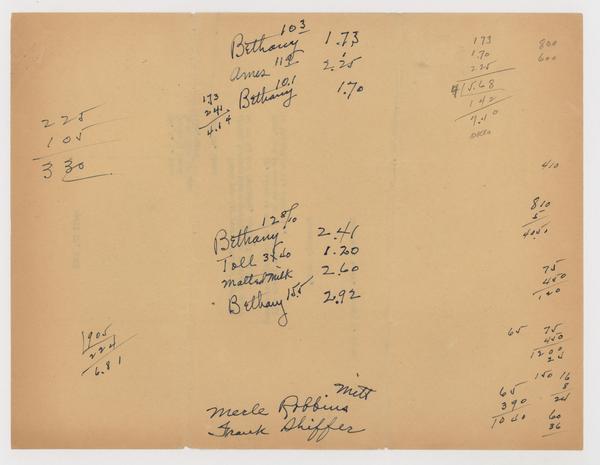 103
Bethany 1.73
Ames 119 2.25
Bethany 101 1.70
173
241
4.14
173
170
225
15.68
142
7.10
800
600
225
105
330
410
Bethany 128/10 2.41
Toll 3x40 1.20
Malted Milk 2.60
Bethany 155 2.92
810
5
4050
75
450
1905
224
6.81
65 75
450
1200
25
150 16
8
24
65
390
1040
60
36
Mitt
Merle Robbins
Frank Shiffer